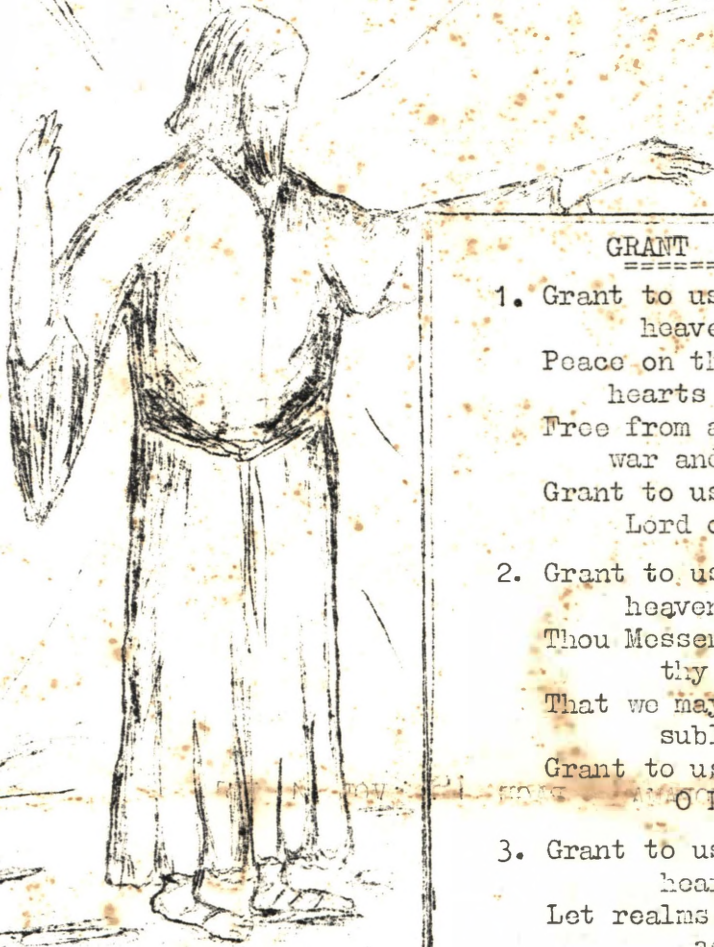 GRANT
1. Grant to us
heave
Peace on th
hearts
Free from a
war and
Grant to us
Lord o
2. Grant to us
heaven
Thou Messen
thy
That we may
subl
Grant to us
O
3. Grant to us
hear
Let realms